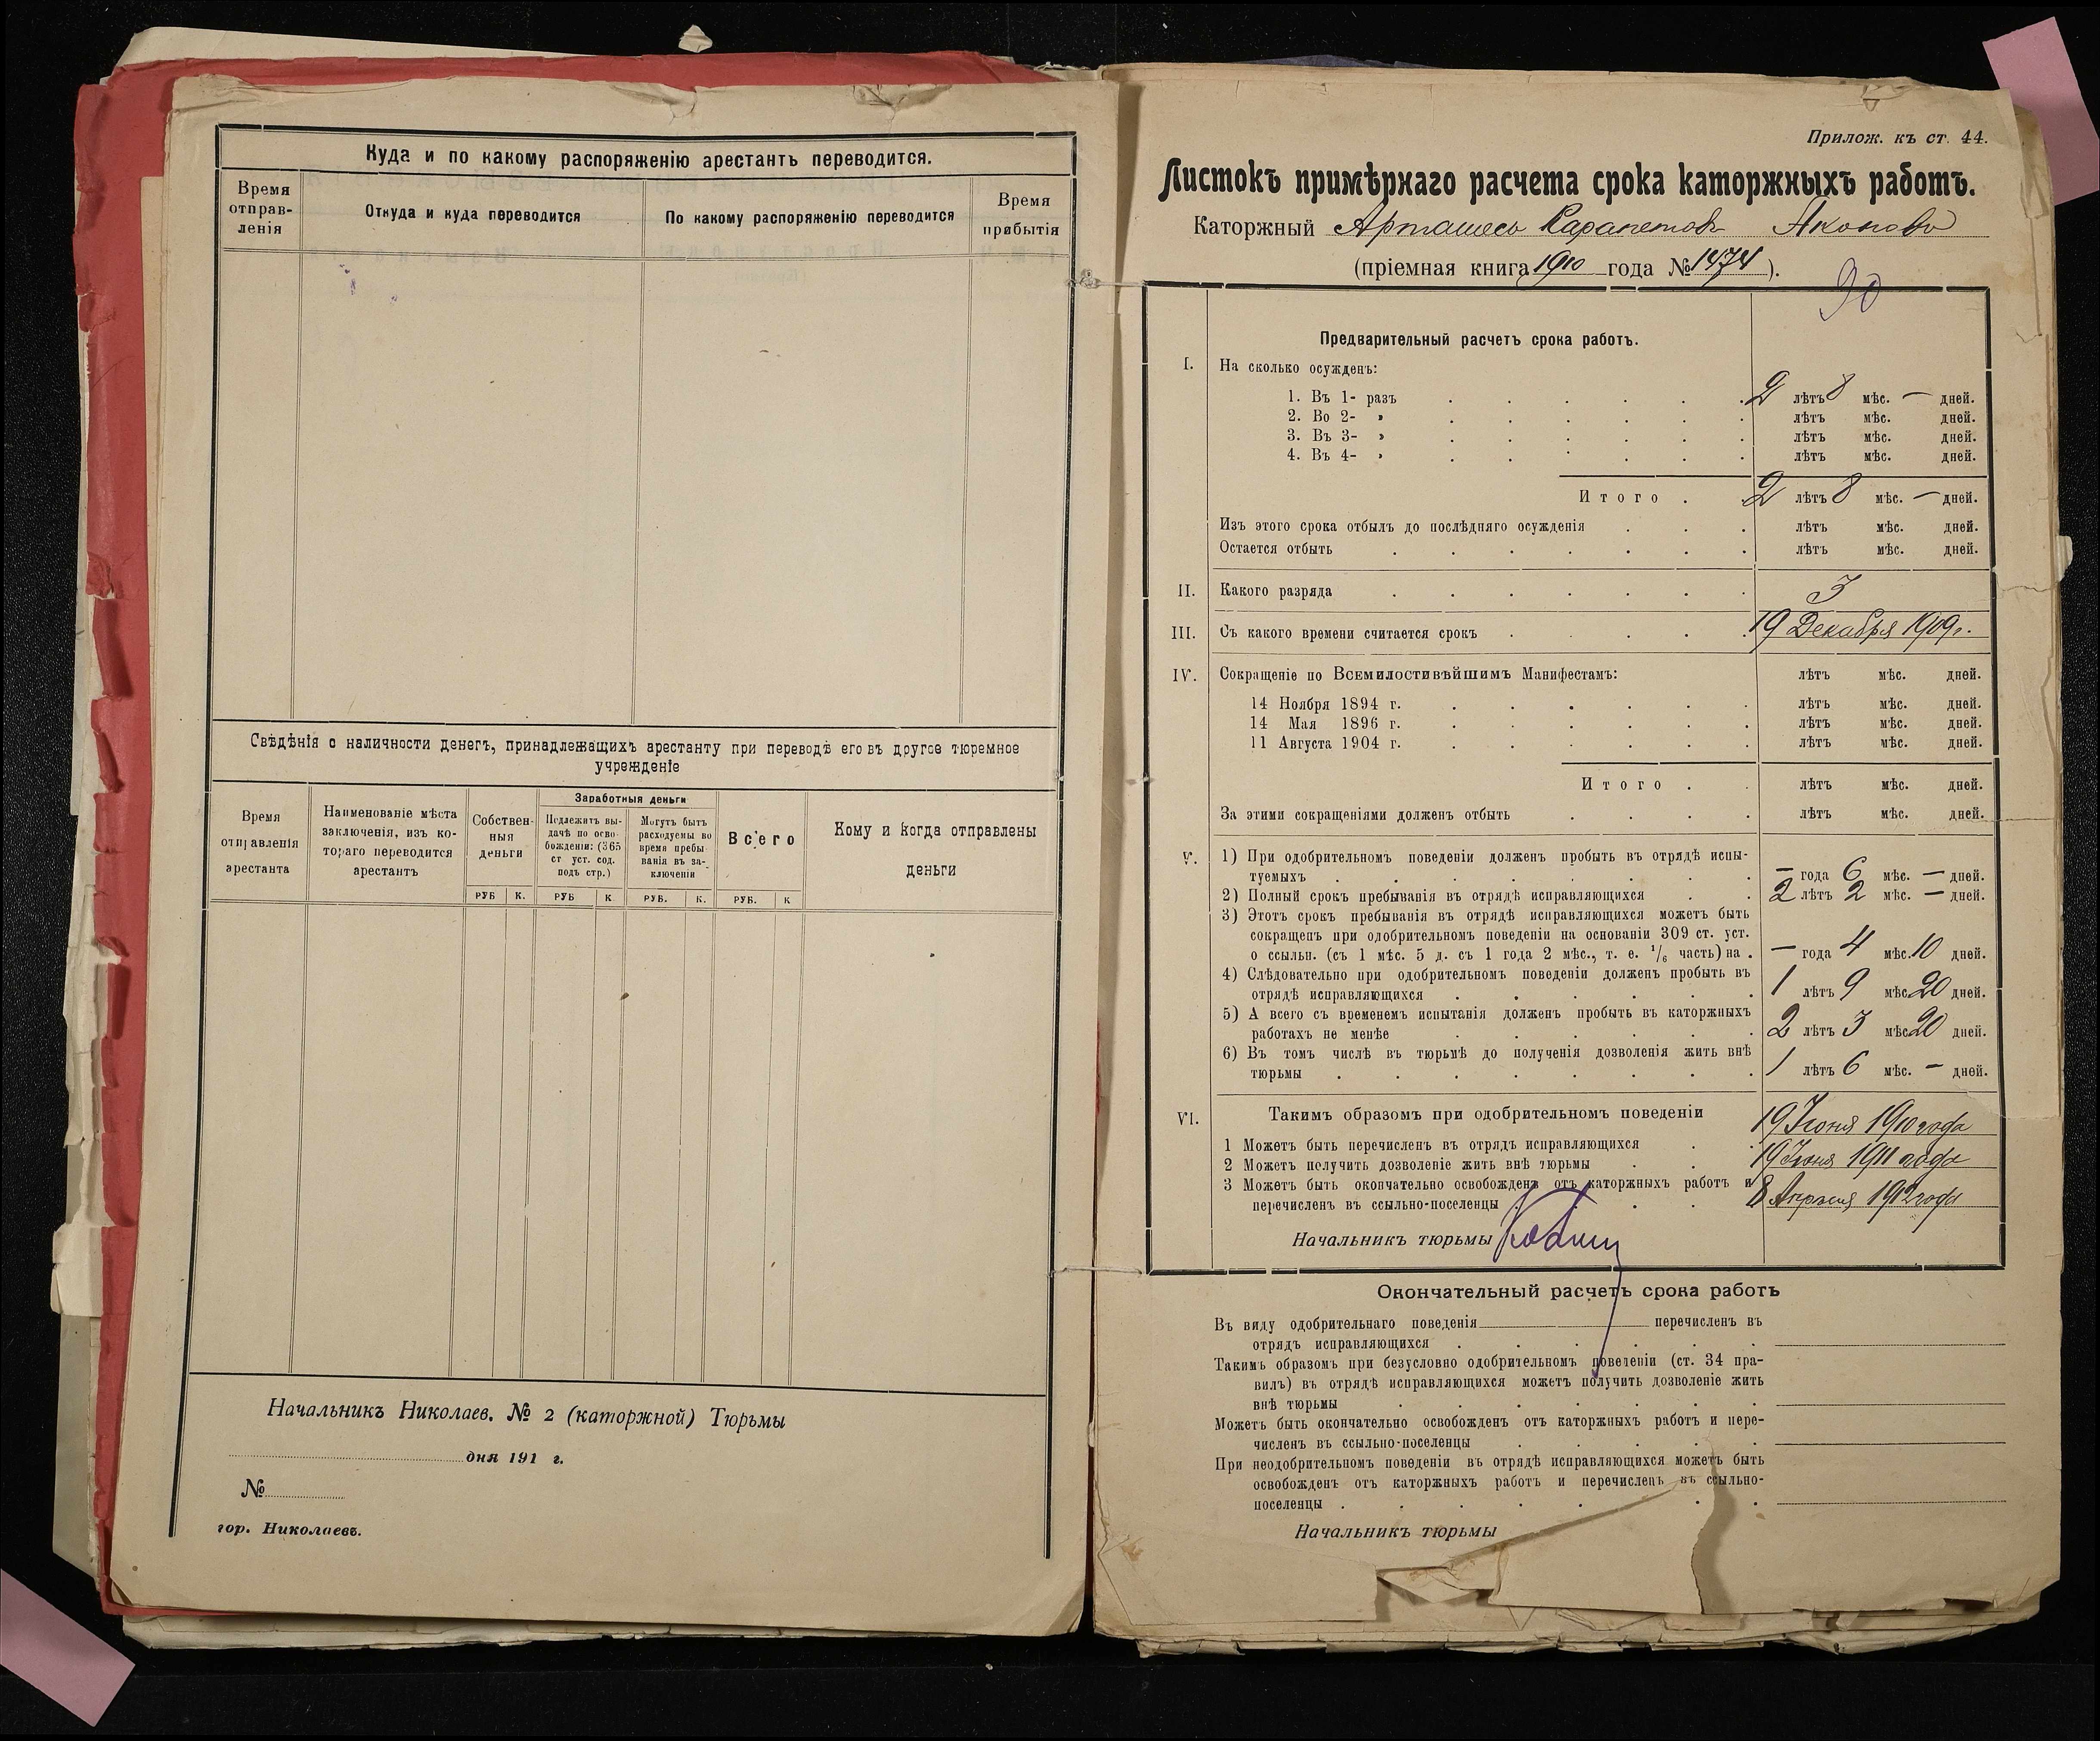 Куда и по какому распоряженію арестантъ переводится.
Время отправ-ленія
Откуда и куда переводится
По какому распоряженію переводится
Время прибытія
Свѣдѣнія о наличности денегъ, принадлежащихъ арестанту при переводѣ его въ другое тюремное
учрежденіе
Время отправленія арестанта
Наименованіе мѣста заключенія, изъ ко-тораго переводится арестантъ
Собствен-ныя деньги
Заработныя деньги
Подлежитъ вы-дачѣ по осво-божденіи: (365 ст уст. сод. подъ стр.)
Могутъ быть расходуемы во время пребы-ванія въ за-ключеніи
Всего
Кому и когда отправлены деньги
РУБ К. РУБ К РУБ. К. РУБ. К
Начальникъ Николаев. № 2 (каторжной) Тюрьмы
дня 191 г.
№
гор. Николаевъ.
Прилож. къ ст. 44.
Листокъ примѣрнаго расчета срока каторжныхъ работъ.
Каторжный Арташесъ Карапетовъ Акоповъ
(пріемная книга 1910 года № 1474).
90
Предварительный расчетъ срока работъ.
I. На сколько осужденъ:
1. Въ 1- разъ 2 лѣтъ 8 мѣс. — дней.
2. Во 2- » лѣтъ мѣс. дней.
3. Въ 3- » лѣтъ мѣс. дней.
4. Въ 4- » лѣтъ мѣс. дней.
Итого. 2 лѣтъ 8 мѣс. — дней.
Изъ этого срока отбылъ до послѣдняго осужденія лѣтъ мѣс. дней.
Остается отбыть лѣтъ мѣс. дней.
II. Какого разряда 3
III. Съ какого времени считается срокъ 19 Декабря 1909 г.
IV. Сокращеніе по Всемилостивѣйшимъ Манифестамъ: лѣтъ мѣс. дней.
14 Ноября 1894 г. лѣтъ мѣс. дней.
14 Мая 1896 г. лѣтъ мѣс. дней.
11 Августа 1904 г. лѣтъ мѣс. дней.
Итого. лѣтъ мѣс. дней.
За этими сокращеніями долженъ отбыть лѣтъ мѣс. дней.
V. 1) При одобрительномъ поведеніи долженъ пробыть въ отрядѣ испы-
туемыхъ — года 6 мѣс. — дней.
2) Полный срокъ пребыванія въ отрядѣ исправляющихся 2 лѣтъ 2 мѣс. — дней.
3) Этотъ срокъ пребыванія въ отрядѣ исправляющихся можетъ быть
сокращенъ при одобрительномъ поведеніи на основаніи 309 ст. уст.
о ссыльн. (съ 1 мѣс. 5 д. съ 1 года 2 мѣс., т. е. 1/6 часть) на. — года 4 мѣс. 10 дней.
4) Слѣдовательно при одобрительномъ поведеніи долженъ пробыть въ
отрядѣ исправляющихся 1 лѣтъ 9 мѣс. 20 дней.
5) А всего съ временемъ испытанія долженъ пробыть въ каторжныхъ
работахъ не менѣе 2 лѣтъ 3 мѣс. 20 дней.
6) Въ томъ числѣ въ тюрьмѣ до полученія дозволенія жить внѣ
тюрьмы 1 лѣтъ 6 мѣс. — дней.
VI. Такимъ образомъ при одобрительномъ поведеніи
1 Можетъ быть перечисленъ въ отрядъ исправляющихся 19 Іюня 1910 года
2 Можетъ получить дозволеніе жить внѣ тюрьмы 19 Іюня 1911 года
3 Можетъ быть окончательно освобожденъ отъ каторжныхъ работъ и
перечисленъ въ ссыльно-поселенцы 8 Апрѣля 1912 года
Начальникъ тюрьмы
Окончательный расчетъ срока работъ
Въ виду одобрительнаго поведенія перечисленъ въ
отрядъ исправляющихся
Такимъ образомъ при безусловно одобрительномъ поведеніи (ст. 34 пра-
вилъ) въ отрядѣ исправляющихся можетъ получить дозволеніе жить
внѣ тюрьмы
Можетъ быть окончательно освобожденъ отъ каторжныхъ работъ и пере-
численъ въ ссыльно-поселенцы
При неодобрительномъ поведеніи въ отрядѣ исправляющихся можетъ быть
освобожденъ отъ каторжныхъ работъ и перечисленъ въ ссыльно-
поселенцы
Начальникъ тюрьмы